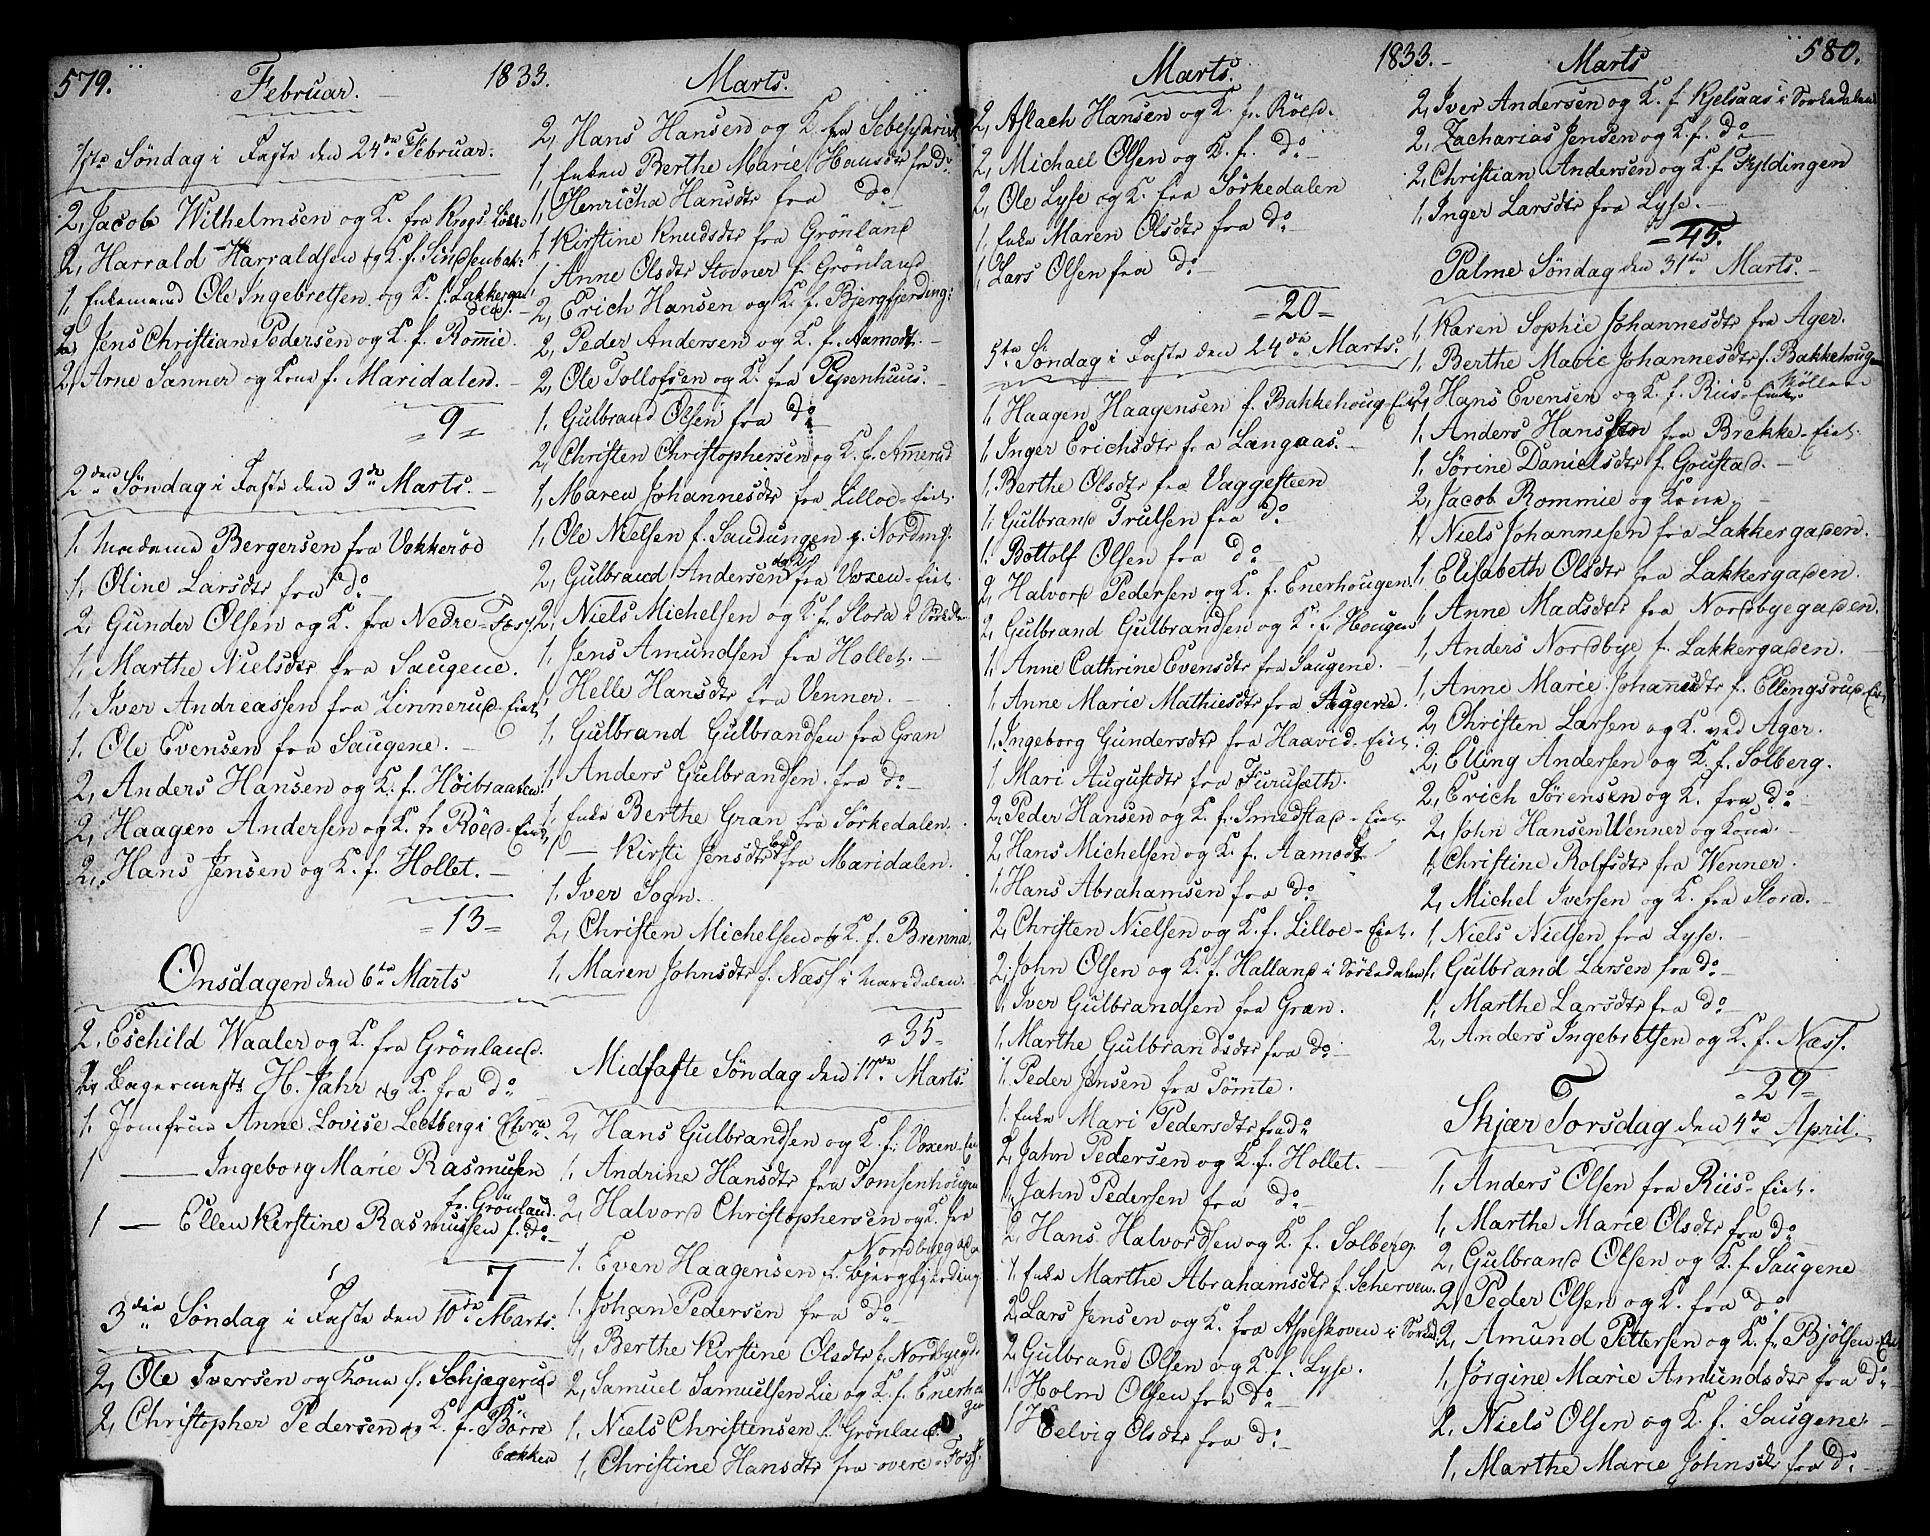 579.
Februar.
1833.
1ste Söndag i Faste den 24de Februar.
2, Jacob Wilhelmsen og K. fra Krogs
2, Harrald Harraldsen og K. f. Sinsenbak:
1, Enkemand Ole Ingebretsen og K. f. Lakkerga
den.
2, Jens Christian Pedersen og K. f. Rommie.
2, Arne Sanner og Kone f. Maridalen.
= 9 =
2den Söndag i Faste den 3de Marts.
1, Madame Bergersen fra Vækkeröe
1, Oline Larsdtr fra do
2, Gunder Olsen og K. fra Nedre-Foss.
1, Marthe Nielsdtr fra Saugene.
1, Iver Andreassen fra Linnerud-Eiet
1, Ole Evensen fra Saugene.
2, Anders Hansen og K. f. Höibraaten.
2, Haagen Andersen og K. fr Röed-Eiet
2, Hans Jensen og K. f. Hollet.
= 13 =
Onsdagen den 6te Marts
2, Eschild Waaler og K. fra Grönland.
2, Lagermestr H. Jahr og K. fra do
1. Jomfrue Anne Lovise Lectberg i
1 — Ingeborg Marie Rasmusen
fr. Grönland.
1 — Ellen Kirstine Rasmussen f. do
7
3die Söndag i Faste den 10de Marts.
2, Ole Iversen og Kone f. Schjægerud
2, Christopher Pedersen og K. f. Börre
bækken
Marts.
2, Hans Hansen og K. fra
1, Enken Berthe Marie Hansdtr fr do
1, Henricha Hansdtr fra do
1, Kirstine Knudsdtr fra Grönland
1, Anne Olsdtr Stovner f. Grönland
2, Erich Hansen og K. f. Bjergfjerding:
2, Peder Andersen og K. f. Aamodt.
2, Ole Tollofsen og K. fra Pipenhuus.
1, Gulbrand Olsen fra do
2, Christen Christophersen og K. f. Ammerud
1, Maren Johannesdtr fra Lilloe-Eiet.
1, Ole Nielsen f. Saudungen p. Nordm:
2, Gulbrand Andersen og K. fra Voxen-Eiet.
2, Niels Michelsen og K. f. Slora i Sörkeda
1, Jens Amundsen fra Hollet.
1, Helle Hansdtr fra Venner.
1, Gulbrand Gulbrandsen fra Gran
1, Anders Gulbrandsen fra do
1, Enke Berthe Gran fra Sörkedalen.
1, — Kirsti Jensdtr fra Maridalen.
1, Iver Sogn.
2, Christen Michelsen og K. f. Brenna
1, Maren Johnsdtr f. Næss i Maridalen.
= 35 =
Midfaste Söndag den 17de Marts.
2, Hans Gulbrandsen og K. f. Voxen-Eie
1, Andrine Hansdtr fra Tomsenhougen
2, Halvord Christophersen og K. fra
Nordbyegade
1. Even Haagensen f. Bjergfjerding:
1. Johan Pedersen fra do
1, Berthe Kirstine Olsdtr f. Nordbyegd:
2, Samuel Samuelsen Lie og K. f. Enerhou
gen
1, Niels Christensen f. Grönland
1, Christine Hansdtr fra overe-Foss.
Marts.
1833.
2, Aslach Hansen og K. fr. Röed.
2, Michael Olsen og K. f. do
2, Ole Lyse og K. fra Sörkedalen
1, Enke Maren Olsdtr fra do
1, Lars Olsen fra do
= 20 =
5te Söndag i Faste den 24de Marts.
1, Haagen Haagensen f. Bakkehoug-Eiet
1, Inger Erichsdtr fra Langaas.
1, Berthe Olsdtr fra Vaggesteen
1, Gulbrand Trulsen fra do
1. Bottolf Olsen fra do
2, Halvord Pedersen og K. f. Enerhougen
2, Gulbrand Gulbrandsen og K. f. Hougen
1. Anne Cathrine Evensdtr fra Saugene.
1, Anne Marie Mathiesdtr fra Aaggerie.
1, Ingeborg Gundersdtr fra Haavid-Eiet.
1, Mari Augustdtr fra Furusæth.
2, Peder Hansen og K. f. Smedstad-Eiet.
2, Hans Michelsen og K. f. Aamodt
1, Hans Abrahamsen fra do
2, Christen Nielsen og K. f. Lilloe-Eiet.
2, John Olsen og K. f. Halland i Sörkedalen
1, Iver Gulbrandsen fra Gran.
1, Marthe Gulbrandsdtr fra do
1, Peder Jensen fra Tömte.
1. Enke Mari Pedersdtr fra do
2, Jahn Pedersen og K. f. Hollet.
1, Jahn Pedersen fra do
2, Hans Halvordsen og K. f. Solberg.
1. Enke Marthe Abrahamsdtr f. Scherven.
2, Lars Jensen og K. fra Aspeskoven i Sörked
2, Gulbrand Olsen og K. f. Lyse.
1, Holm Olsen fra do
1, Helvig Olsdtr fra do
Marts
580.
2, Iver Andersen og K. f. Kjelsaas i Sörkedalen
2, Zacharias Jensen og K. f. do
2, Christian Andersen og K. f. Fyldingen
1, Inger Larsdtr fra Lyse.
= 45.
Palme Söndag den 31te Marts.
1, Karen Sophie Johannesdtr fra Ager.
1, Berthe Marie Johannesdtr f. Bakkehougen
2, Hans Evensen og K. f. Riis-Eiet.
1, Anders Hansen fra Brekke-Eiet.
1, Sörine Danielsdtr f. Goustad.
2, Jacob Rommie og Kone.
1, Niels Johannesen fra Lakkergaden.
1, Elisabeth Olsdtr fra Lakkergaden.
1, Anne Madsdtr fra Nordbyegaden.
1, Anders Nordbye f. Lakkergaden.
1, Anne Marie Johannesdtr f. Ellingsrud-Eiet
2, Christen Larsen og K. ved Ager.
2, Elling Andersen og K. f. Solberg.
2, Erich Sörensen og K. fra do
2, John Hansen Wenner og Kone.
1, Christine Rolfsdtr fra Wenner.
2, Michel Iversen og K. fra Slora.
1, Niels Nielsen fra Lyse.
1, Gulbrand Larsen fra do
1, Marthe Larsdtr fra do
2, Anders Ingebretsen og K. f. Næss.
= 29 =
Skjær Torsdag den 4de April.
1, Anders Olsen fra Riis-Eiet.
1, Marthe Marie Olsdtr fra do
2, Gulbrand Olsen og K. f. Saugene
2, Peder Olsen og K. fra do
2, Amund Pettersen og K. fr. Bjölsen-Eiet
1, Jörgine Marie Amundsdtr fra do
2, Niels Olsen og K. f. Saugene.
1, Marthe Marie Johnsdtr fra do